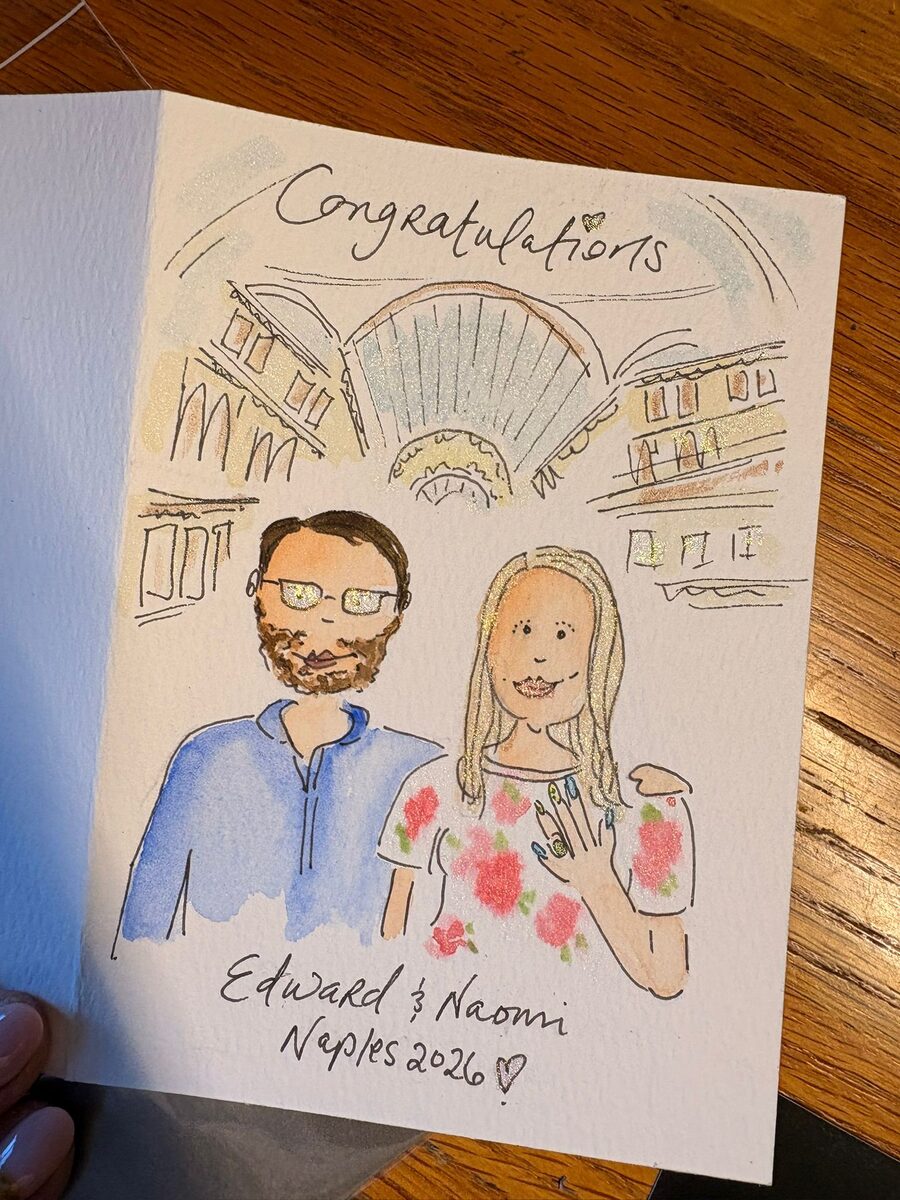 Congratulations
Edward & Naomi
Naples 2026